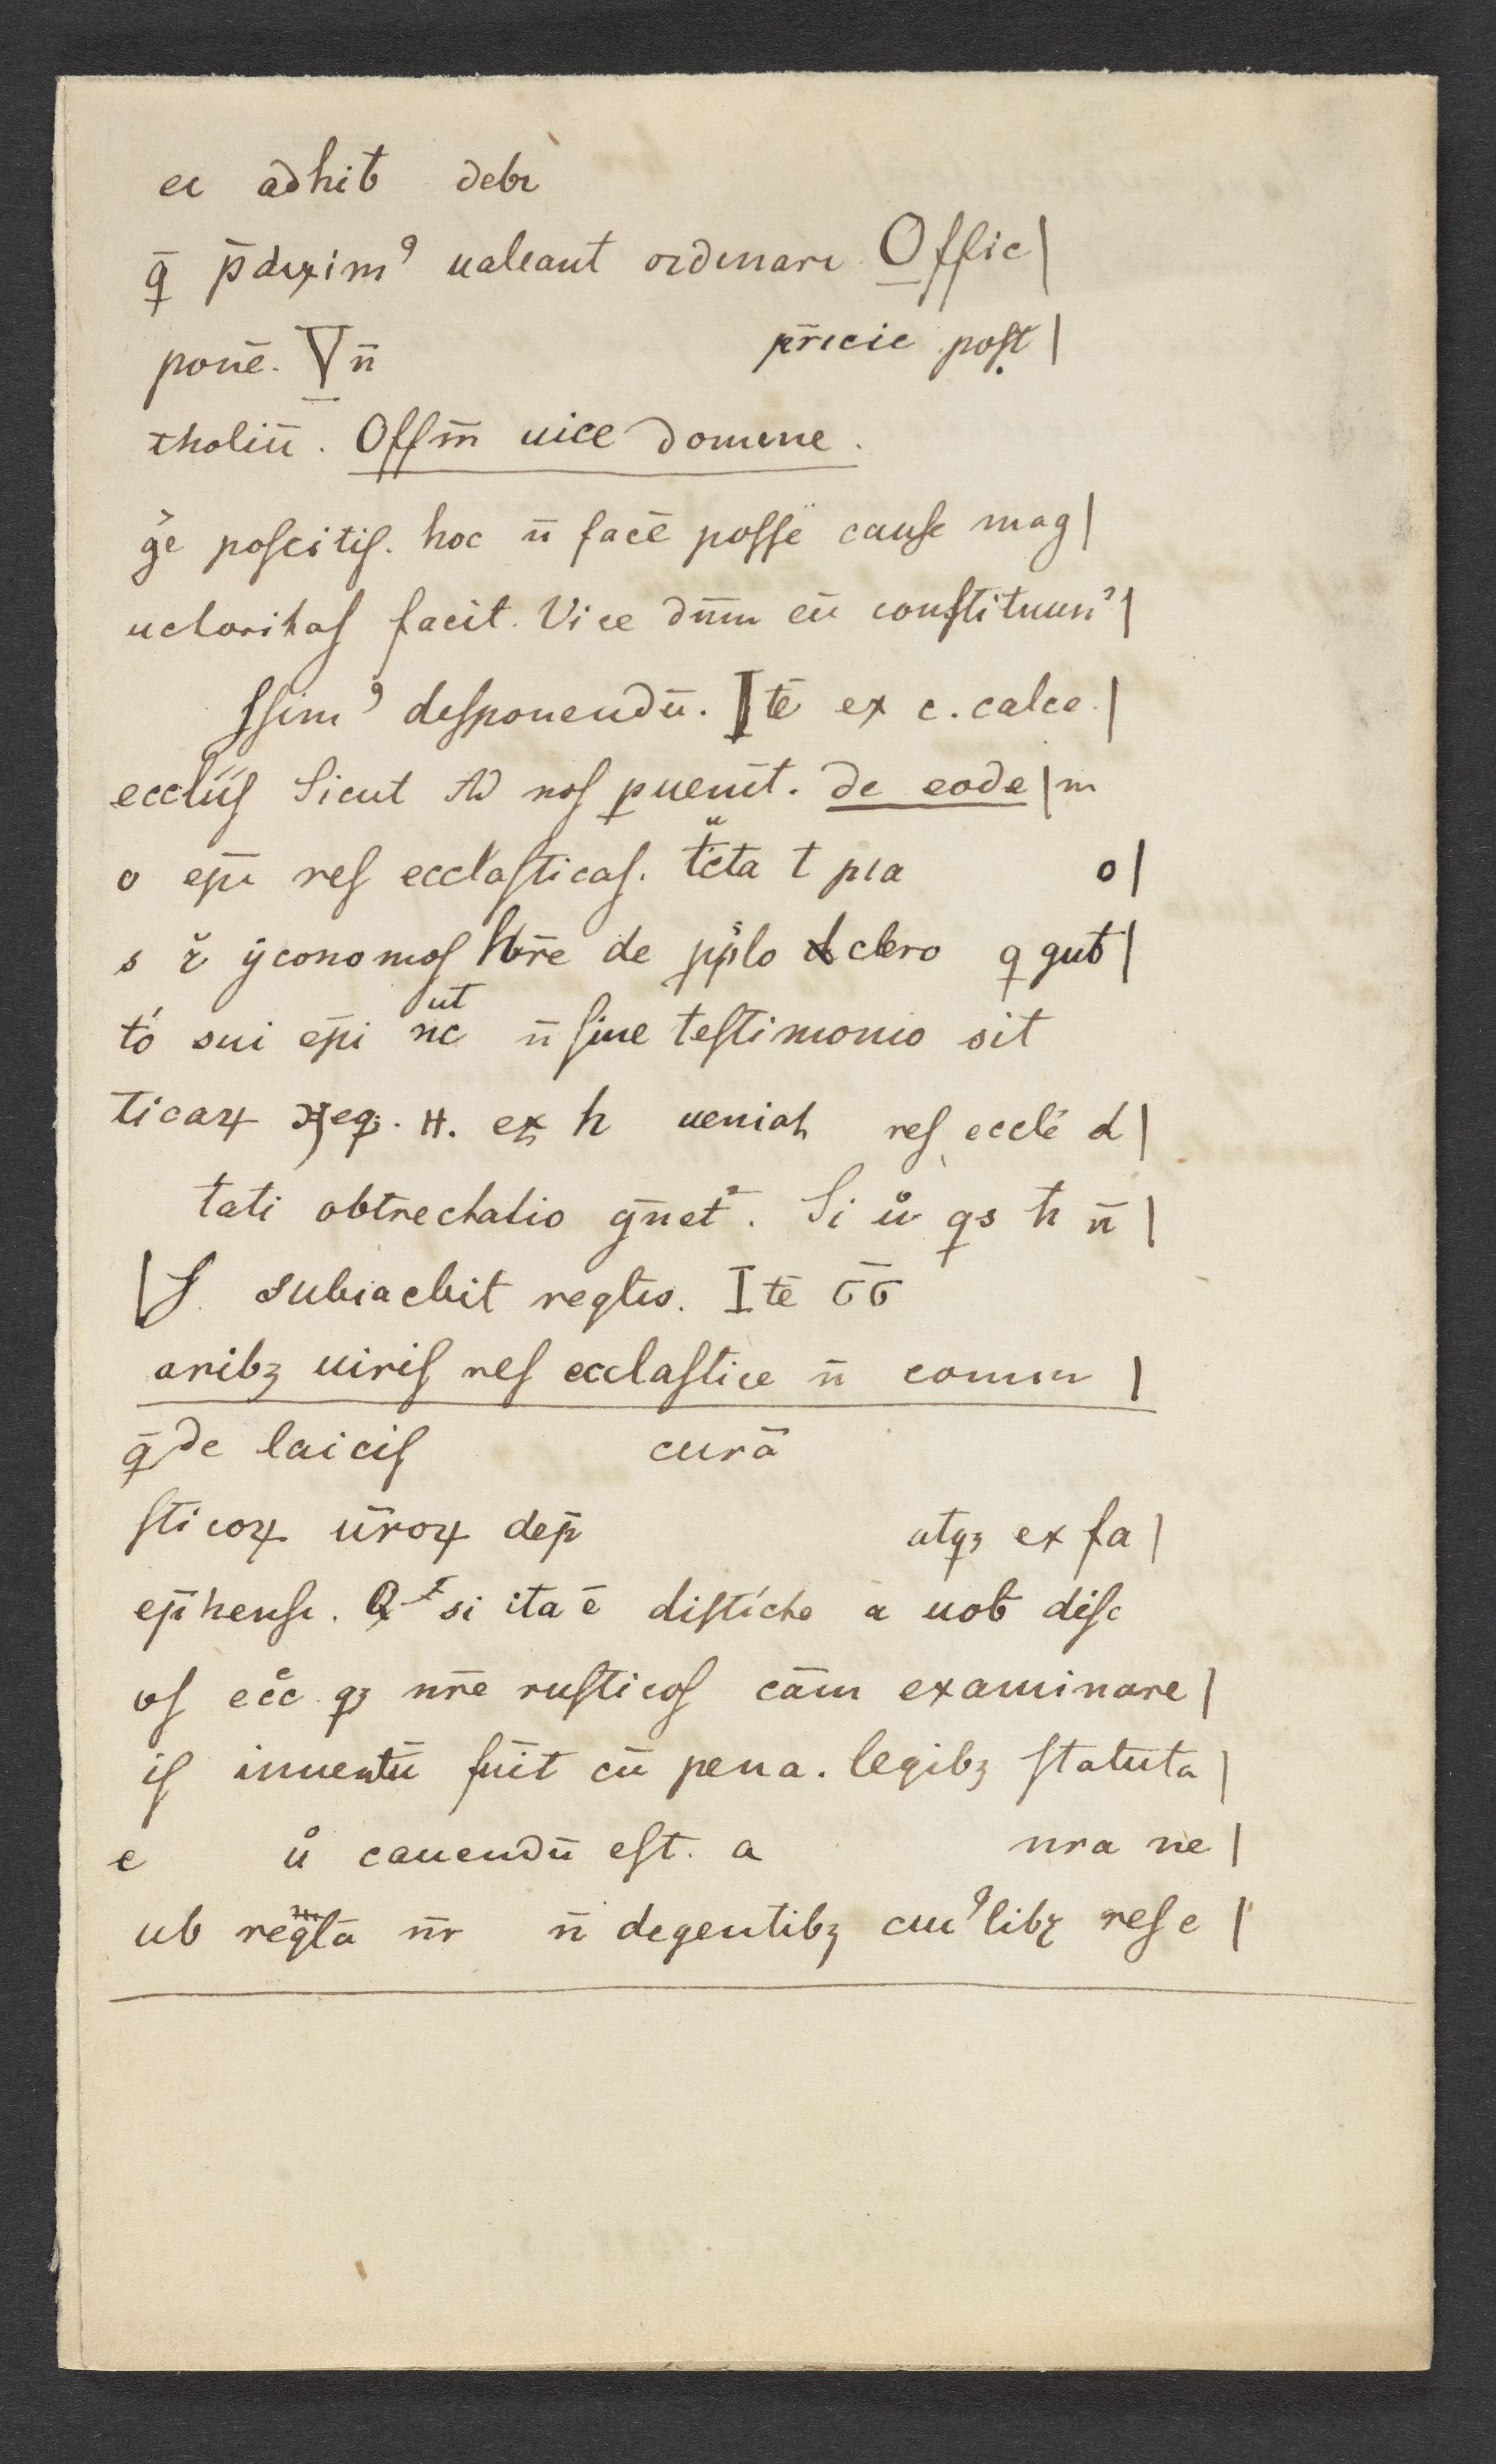 ei adhib̄ debi
q̄ p̄diximꝰ ualeant ordinari Offic|
ponē. Vn̄ p̄ricie post|
tholiū. Offm̄ uice domini.
g̃e poscitiſ. hoc n̄ facē poſſe cauſe mag|
uctoritaſ facit. Vice dn̄m eū conſtituun|
ſſimꝰ diſponendū. Itē ex c. calce.|
eccl̄iiſ Sicut Ad noſ ꝑuenit. de eode|m
o ep̄i reſ eccl̄aſticaſ. tc̄ta t pia o|
s r̃ ÿconomoſ hr̄e de pp̄lo clero q gub̄|
tó sui ep̄i ut nc n̄ ſiue teſtimonio sit
ticaꝝ eqꝫ. H. ex h ueniat reſ eccl̄e d|
tati obtrectatio gn̄et᷑. Si ů qs h n̄|
|S. subiacebit regl̄is. Itē
aribꝫ uiriſ reſ eccl̄aſtice n̄ comm|
q̄ de laiciſ curā
ſticoꝝ ūroꝝ dep̄ atqꝫ ex fa|
ep̄i henſi. Qᵈ si ita ē diſticte a uob̄ diſc
oſ ecc̄ qꝫ nr̄e ruſticoſ cām examinare|
iſ inuentū fūit cū pena. legibꝫ ſtatuta|
e ů cauendū eſt. a nra ne|
ub regl̄a nr̄ n̄ degentibꝫ cuiꝰlibꝫ reſ e|